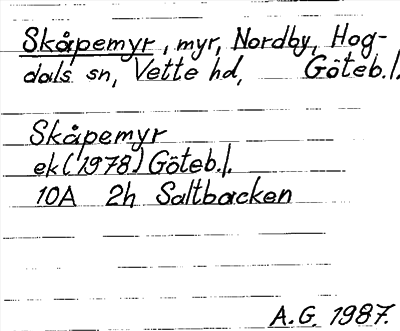 Skåpemyr, myr, Nordby, Hog-
dals sn, Vette hd, Göteb.l.
Skåpemyr
ek (1978) Göteb.l.
10A 2h Saltbacken
A.G. 1987.